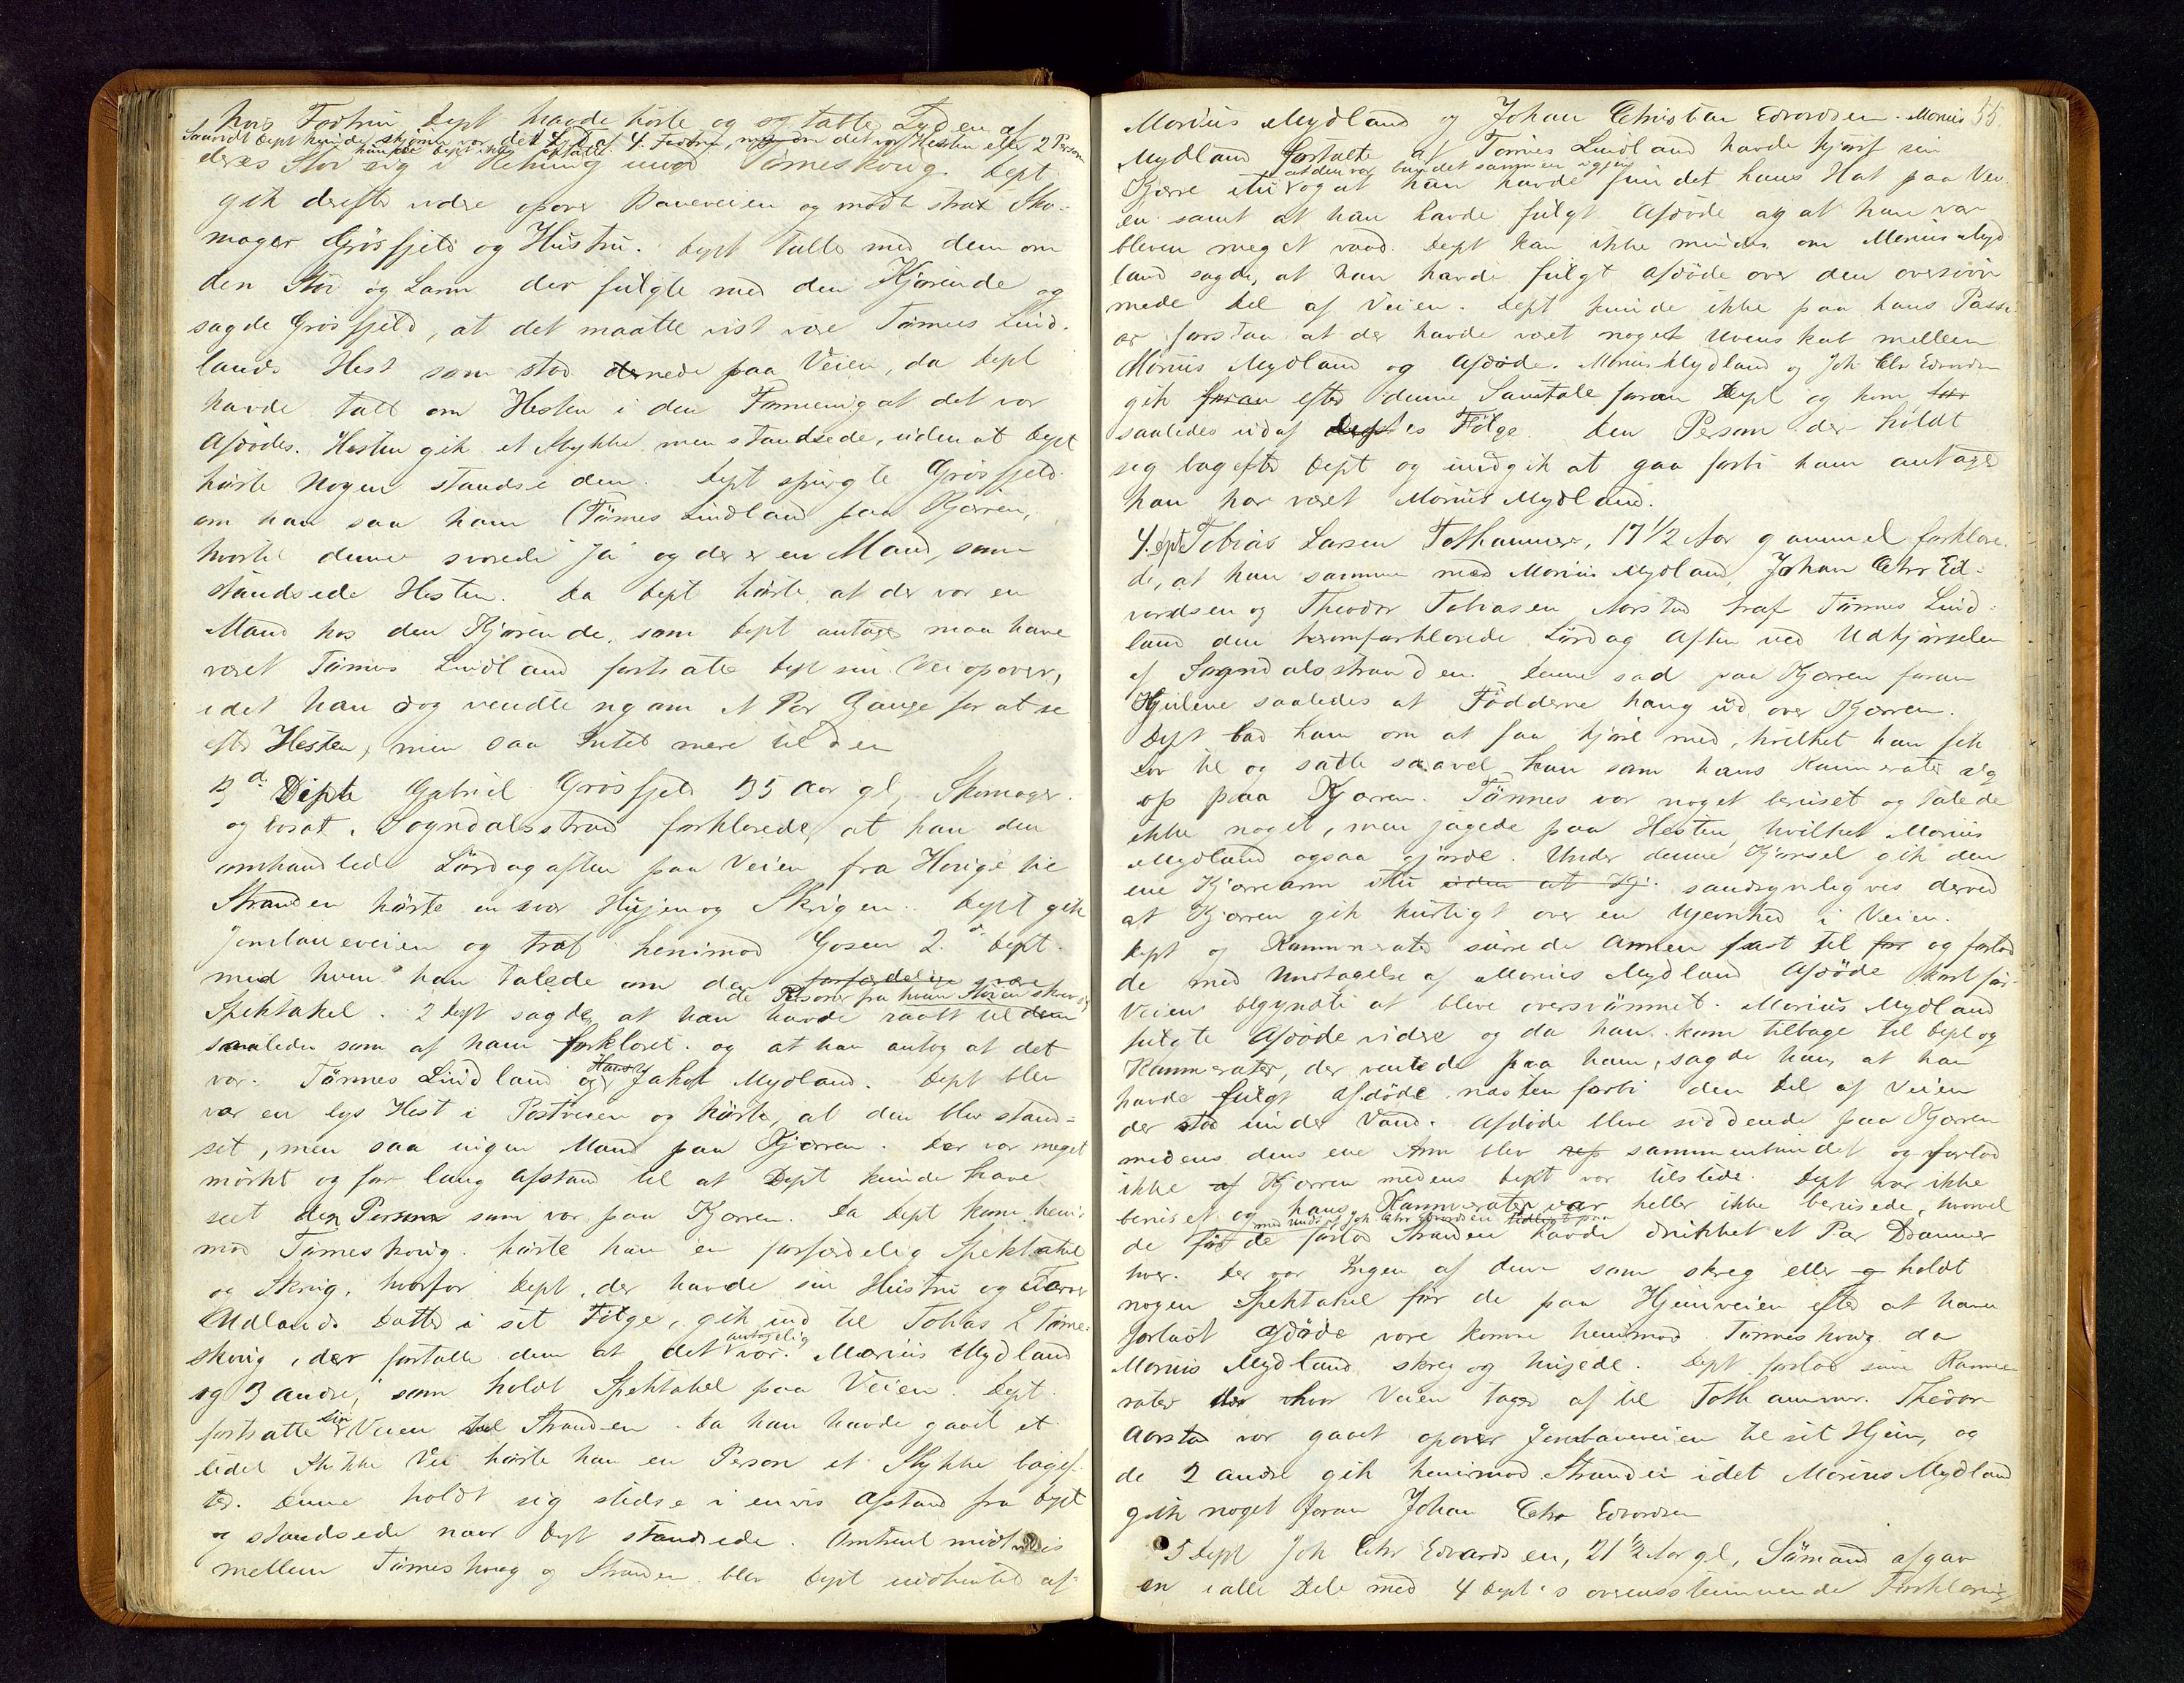 hos Fostrin Dept havde hörte og opfatte Lyden af
Saavidt Dept kunde skjönne var det Lyd af 4 Fodtrin, men om det var Hesten eller 2 Person
kunde Dept ikke opfatte
deres Stöi sig i Retning mod Tömeskoug. Dept
gik derefter videre opover Baneveien og mödte strax Sko-
mager Grösfjeld og Hustru. Dept talte med dem om
den Stöi og Larm der fulgte med den Kjörende og
sagde Grösfjeld, at det maatte vist være Tönnes Lind-
lands Hest som stod dernede paa Veien, da Dept
havde talt om Hesten i den Formening at det var
Afdödes. Hesten gik et Stykke men standsede, uden at Dept
hörte Nogen standse den. Dept spurgte Grösfjeld
om han saa ham (Tönnes Lindland paa Kjærren,
hvortil denne svarede Ja og der er en Mand, som
standsede Hesten. Da Dept hörte at der var en
Mand hos den Kjörende, som Dept antager maa have
været Tönnes Lindland fortsatte Dept sin Vei opover,
idet han dog vendte sig om et Par Gange for at se
efter Hesten, men saa Intet mere til den
3d Depte Gabriel Grösfjeld 35 Aar gl, Skomager
og bosat i Sogndalsstrand forklarede, at han den
omhandlede Lördagaften paa Veien fra Hovge til
Stranden hörte en svær Hujen og Skrigen. Dept gik
Jernbaneveien og traf henimod Gosen 2d Dept
med hvem han talede om den forfærdelige svære
Spektakel. 2 Dept sagde, at han havde raabt til dem
de Personer fra hvem Stöien skrev sig
saaledes som af ham forklaret. og at han antog at det
var Tönnes Lindland og Hans Jakob Mydland. Dept blev
var en lys Hest i Postveien og hörte, at den blev stand-
set, men saa ingen Mand paa Kjærren. Der var meget
mörkt og for lang Afstand til at Dept kunde have
seet den Person som var paa Kjærren. Da Dept kom heni-
mod Tömeskoug. hörte han en forfærdelig Spektakel
og Skrig, hvorfor Dept, der havde sin Hustru og
Mydlands Datter i sit Fölge, gik ind til Tobias L Töme-
skoug, der fortalte dem at det antagelig var Marius Mydland
og 3 andre, som holdt Spektakel paa Veien. Dept
fortsatte sin Veien til Stranden. Da han havde gaaet et
lidet Stykke Vei hörte han en Person et Stykke bagef-
ter. Denne holdt sig stedse i en vis Afstand fra Dept
og standsede naar Dept standsede. Omtrent midtveis
mellem Tömeskoug og Stranden blev Dept indhentet af
55
Marius Mydland og Johan Christian Edvardsen. Marius
Mydland fortalte at Tönnes Lindland havde kjört sin
Kjærre itu og at den var bundet sammen igjen at han havde fundet hans Hat paa Vei-
en samt at han havde fulgt Afdöde og at han var
bleven meget vaad. Dept kan ikke mindes om Marius Myd-
land sagde, at han havde fulgt Afdöde over den oversvöm-
mede Del af Veien. Dept kunde ikke paa hans Passi-
ar forstaa at der havde været noget Uvenskab mellem
Marius Mydland og Afdöde. Marius Mydland og Joh Chr Edvardsen
gik foran efter denne Samtale foran Dept og kom
saaledes ud af Deptes Fölge. Den Person der holdt
sig bagefter Dept og undgik at gaa forbi ham antager
han har været Marius Mydland.
4. Dept Tobias Larsen Tothammer, 17 1/2 Aar gammel forklare-
de, at han sammen med Marius Mydland, Johan Chr Ed-
vardsen og Theodor Tobiasen Aarstad traf Tönnes Lind-
land den heromforklarede Lördag Aften ved Udkjörselen
af Sogndalsstranden. Denne sad paa Kjærren foran
Hjulene saaledes at Födderne hang ud over Kjærren.
Dept bad ham om at faa kjöre med, hvilket han fik
Lov til og satte saavel han som hans Kammerater sig
op paa Kjærren. Tönnes var noget beruset og talede
ikke noget, men jagede paa Hesten hvilket Marius
Mydland ogsaa gjorde. Under denne Kjörsel gik den
ene Kjærrearm itu uden at Kj. sandsynligvis derved
at Kjærren gik hurtigt over en Ujevnhed i Veien.
Dept og Kammerater surrede Armen fast til for og forlod
de med Undtagelse af Marius Mydland Afdöde kort för
Veien begyndte at blive oversvömmet. Marius Mydland
fulgte Afdöde videre og da han kom tilbage til Dept og
Kammerater, der ventede paa ham, sagde han, at han
havde fulgt Afdöde næsten forbi den Del af Veien
der stod under Vand. Afdöde blev siddende paa Kjærren
medens dens ene Arm blev rep sammenbundet og forlod
ikke af Kjærren medens Dept var tilstede. Dept var ikke
beruset og hans Kammerater var heller ikke berusede, hvorvel
de för de med Undt af Joh Chr Edvardsen forlod Stranden havde drukket et Par Drammer
hver. Der var Ingen af dem som skreg eller g holdt
nogen Spektakel för de paa Hjemveien efter at have
forladt Afdöde vare komne henimod Tömeskoug da
Marius Mydland skreg og hujede. Dept forlod sine Kamme-
rater der hvor Veien tager af til Tothammer. Theodor
Aarstad var gaaet opover Jernbaneveien til sit Hjem, og
de 2 andre gik henimod Stranden idet Marius Mydland
gik noget foran Johan Chr Edvardsen
5 Dept Joh Chr Edvardsen, 21 1/2 Aar gl, Sömand afgav
en i alle Dele med 4 Dept's overensstemmende Forklaring